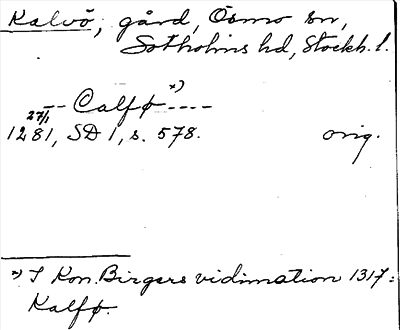 Kalvö, gård, Ösmo sn,
Sotholms hd, Stockh. l.
-- Calfø *) ----
27/1
1281, SD 1, s. 578. orig.
*) I Kon. Birgers vidimation 1317:
Kalfø.